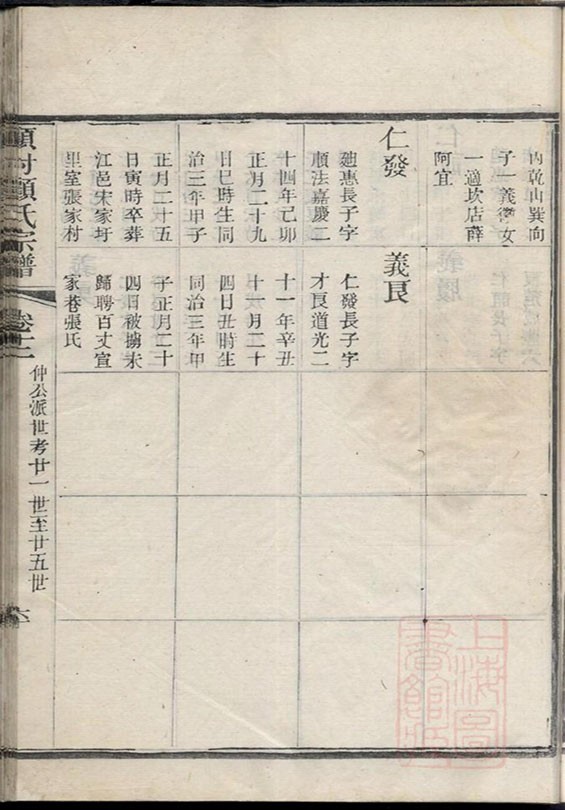 內乾山巽向
子一義徵女
一適坎店薛
阿宜
仁發
廸惠長子字
順法嘉慶二
十四年己卯
正月二十九
日巳時生同
治三年甲子
正月二十五
日寅時卒葬
江邑宋家圩
里室張家村
義良
仁發長子字
才良道光二
十一年辛丑
十月二十
四日丑時生
同治三年甲
子正月二十
四日被擄未
歸聘百丈宣
家巷張氏
顧氏宗譜
卷十二
仲公派世考廿一世至廿五世
上海圖書館藏